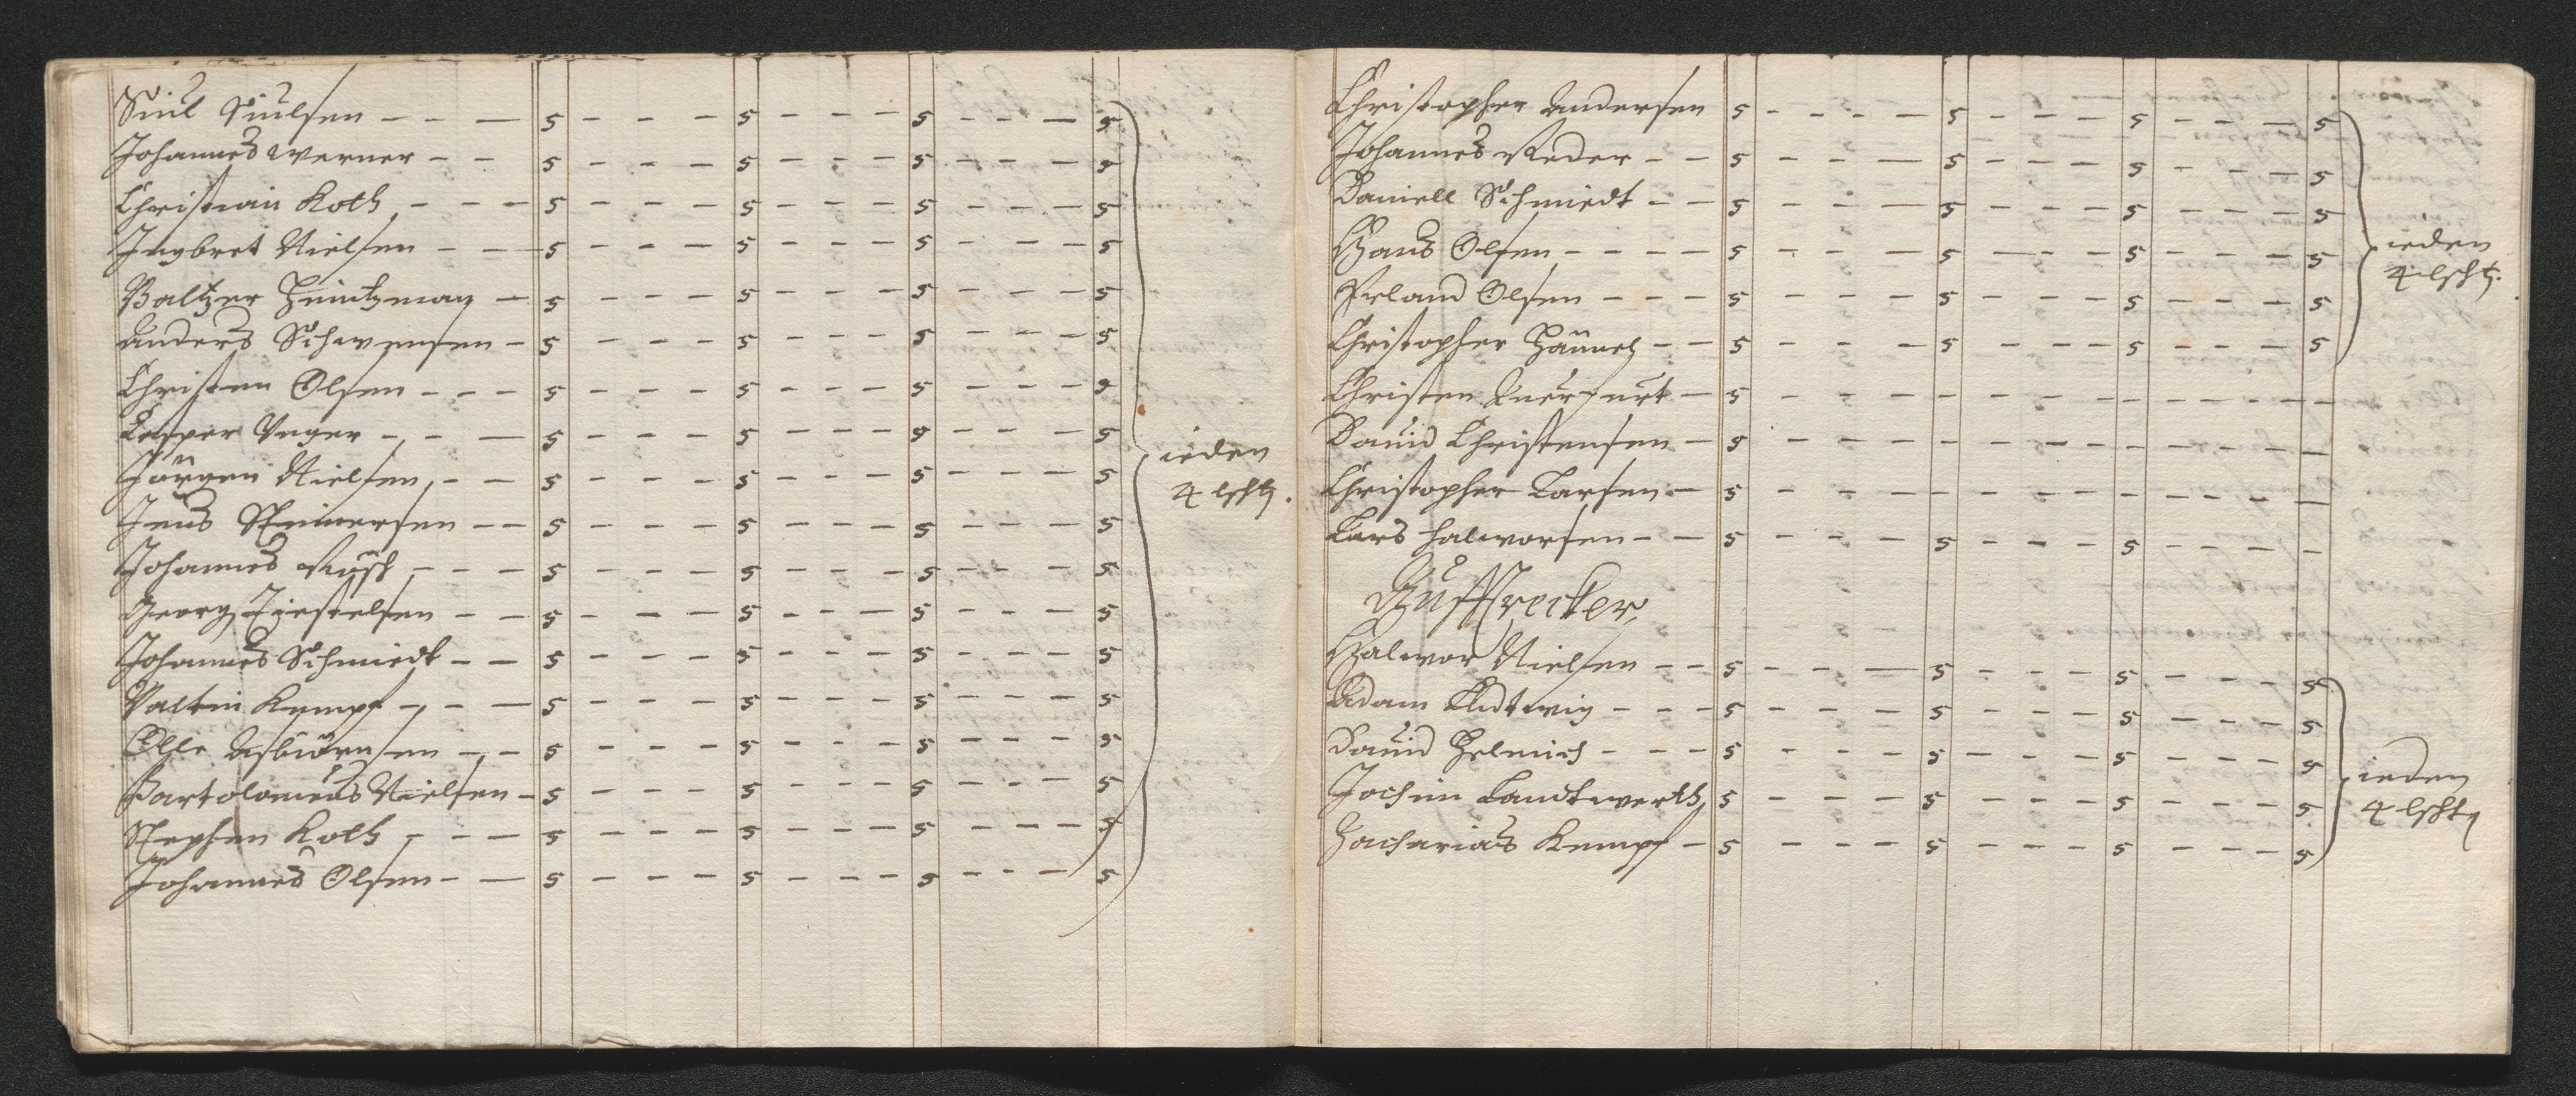 Siul Siulsen - - - 5 - - - 5 - - - 5 - - - 5
Johannes Werner - - 5 - - - 5 - - - 5 - - - 5
Christian Koth - - - 5 - - - 5 - - - 5 - - - 5
Ingbret Nielsen - - 5 - - - 5 - - - 5 - - - 5
Baltzer Heintzman - 5 - - - 5 - - - 5 - - - 5
Anders Schwensen - 5 - - - 5 - - - 5 - - - 5
Christen Olsen - - - 5 - - - 5 - - - 5 - - - 5
Casper Unger - - - 5 - - - 5 - - - 5 - - - 5
ieden
Jörgen Nielsen - - 5 - - - 5 - - - 5 - - - 5
4 lßht.
Jens Steinersen - - 5 - - - 5 - - - 5 - - - 5
Johannes - - - 5 - - - 5 - - - 5 - - - 5
Georg Tiostelsen - - 5 - - - 5 - - - 5 - - - 5
Johannes Schmiedt - - 5 - - - 5 - - - 5 - - - 5
Valtin Kempf - - - 5 - - - 5 - - - 5 - - - 5
Olle Asbiörnsen - - 5 - - - 5 - - - 5 - - - 5
Bartolomeus Nielsen - 5 - - - 5 - - - 5 - - - 5
Stephen Koth - - - 5 - - - 5 - - - 5 - - - 5
Johannes Olsen - - 5 - - - 5 - - - 5 - - - 5
Christopher Andersen 5 - - - - 5 - - - 5 - - - 5
Johannes Reder - - 5 - - - 5 - - - 5 - - - 5
Daniell Schmiedt - - 5 - - - 5 - - - 5 - - - 5
Hans Olsen - - - - 5 - - - 5 - - - 5 - - - 5
ieden
4 lßht.
Erland Olsen - - - 5 - - - 5 - - - 5 - - - 5
Christopher - - 5 - - - 5 - - - 5 - - - 5
Christen Querfurt - 5 - - - - - - - - - - - -
Dauid Christensen - 5 - - - - - - - - - - - -
Christopher Larsen - 5 - - - - - - - - - - - -
Lars Halworsen - - 5 - - - 5 - - - 5 - - - -
Halwor Nielsen - - 5 - - - 5 - - - 5 - - - 5
Adam Ludtwig - - - 5 - - - 5 - - - 5 - - - 5
Dauid Helmich - - - 5 - - - 5 - - - 5 - - - 5
ieden
Jochim Landtwerth 5 - - - - 5 - - - 5 - - - 5
4 lßht
Zacharias Kempf - 5 - - - 5 - - - 5 - - - 5